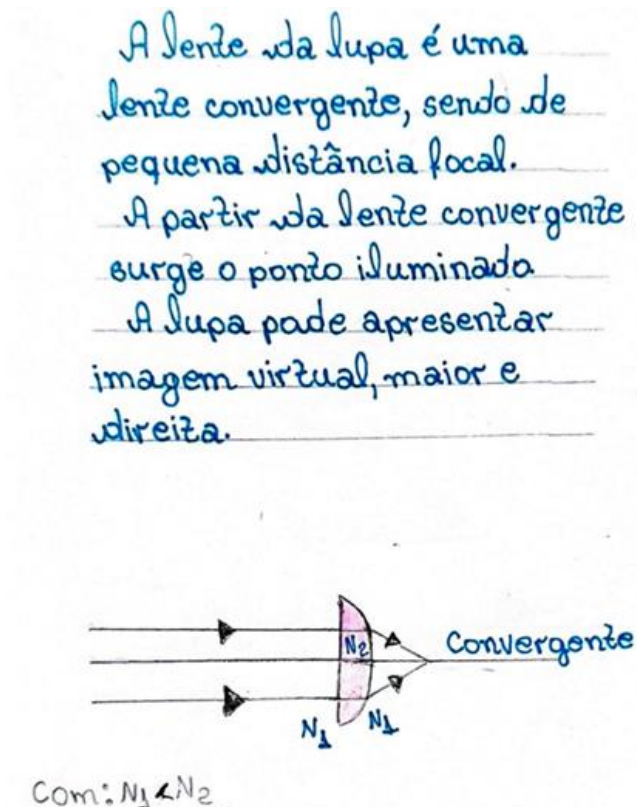 A lente da lupa é uma
lente convergente, sendo de
pequena distância focal.
A partir da lente convergente
surge o ponto iluminado
A lupa pode apresentar
imagem virtual, maior e
direita.
N2
Convergente
N1
N1
Com: N1 < N2